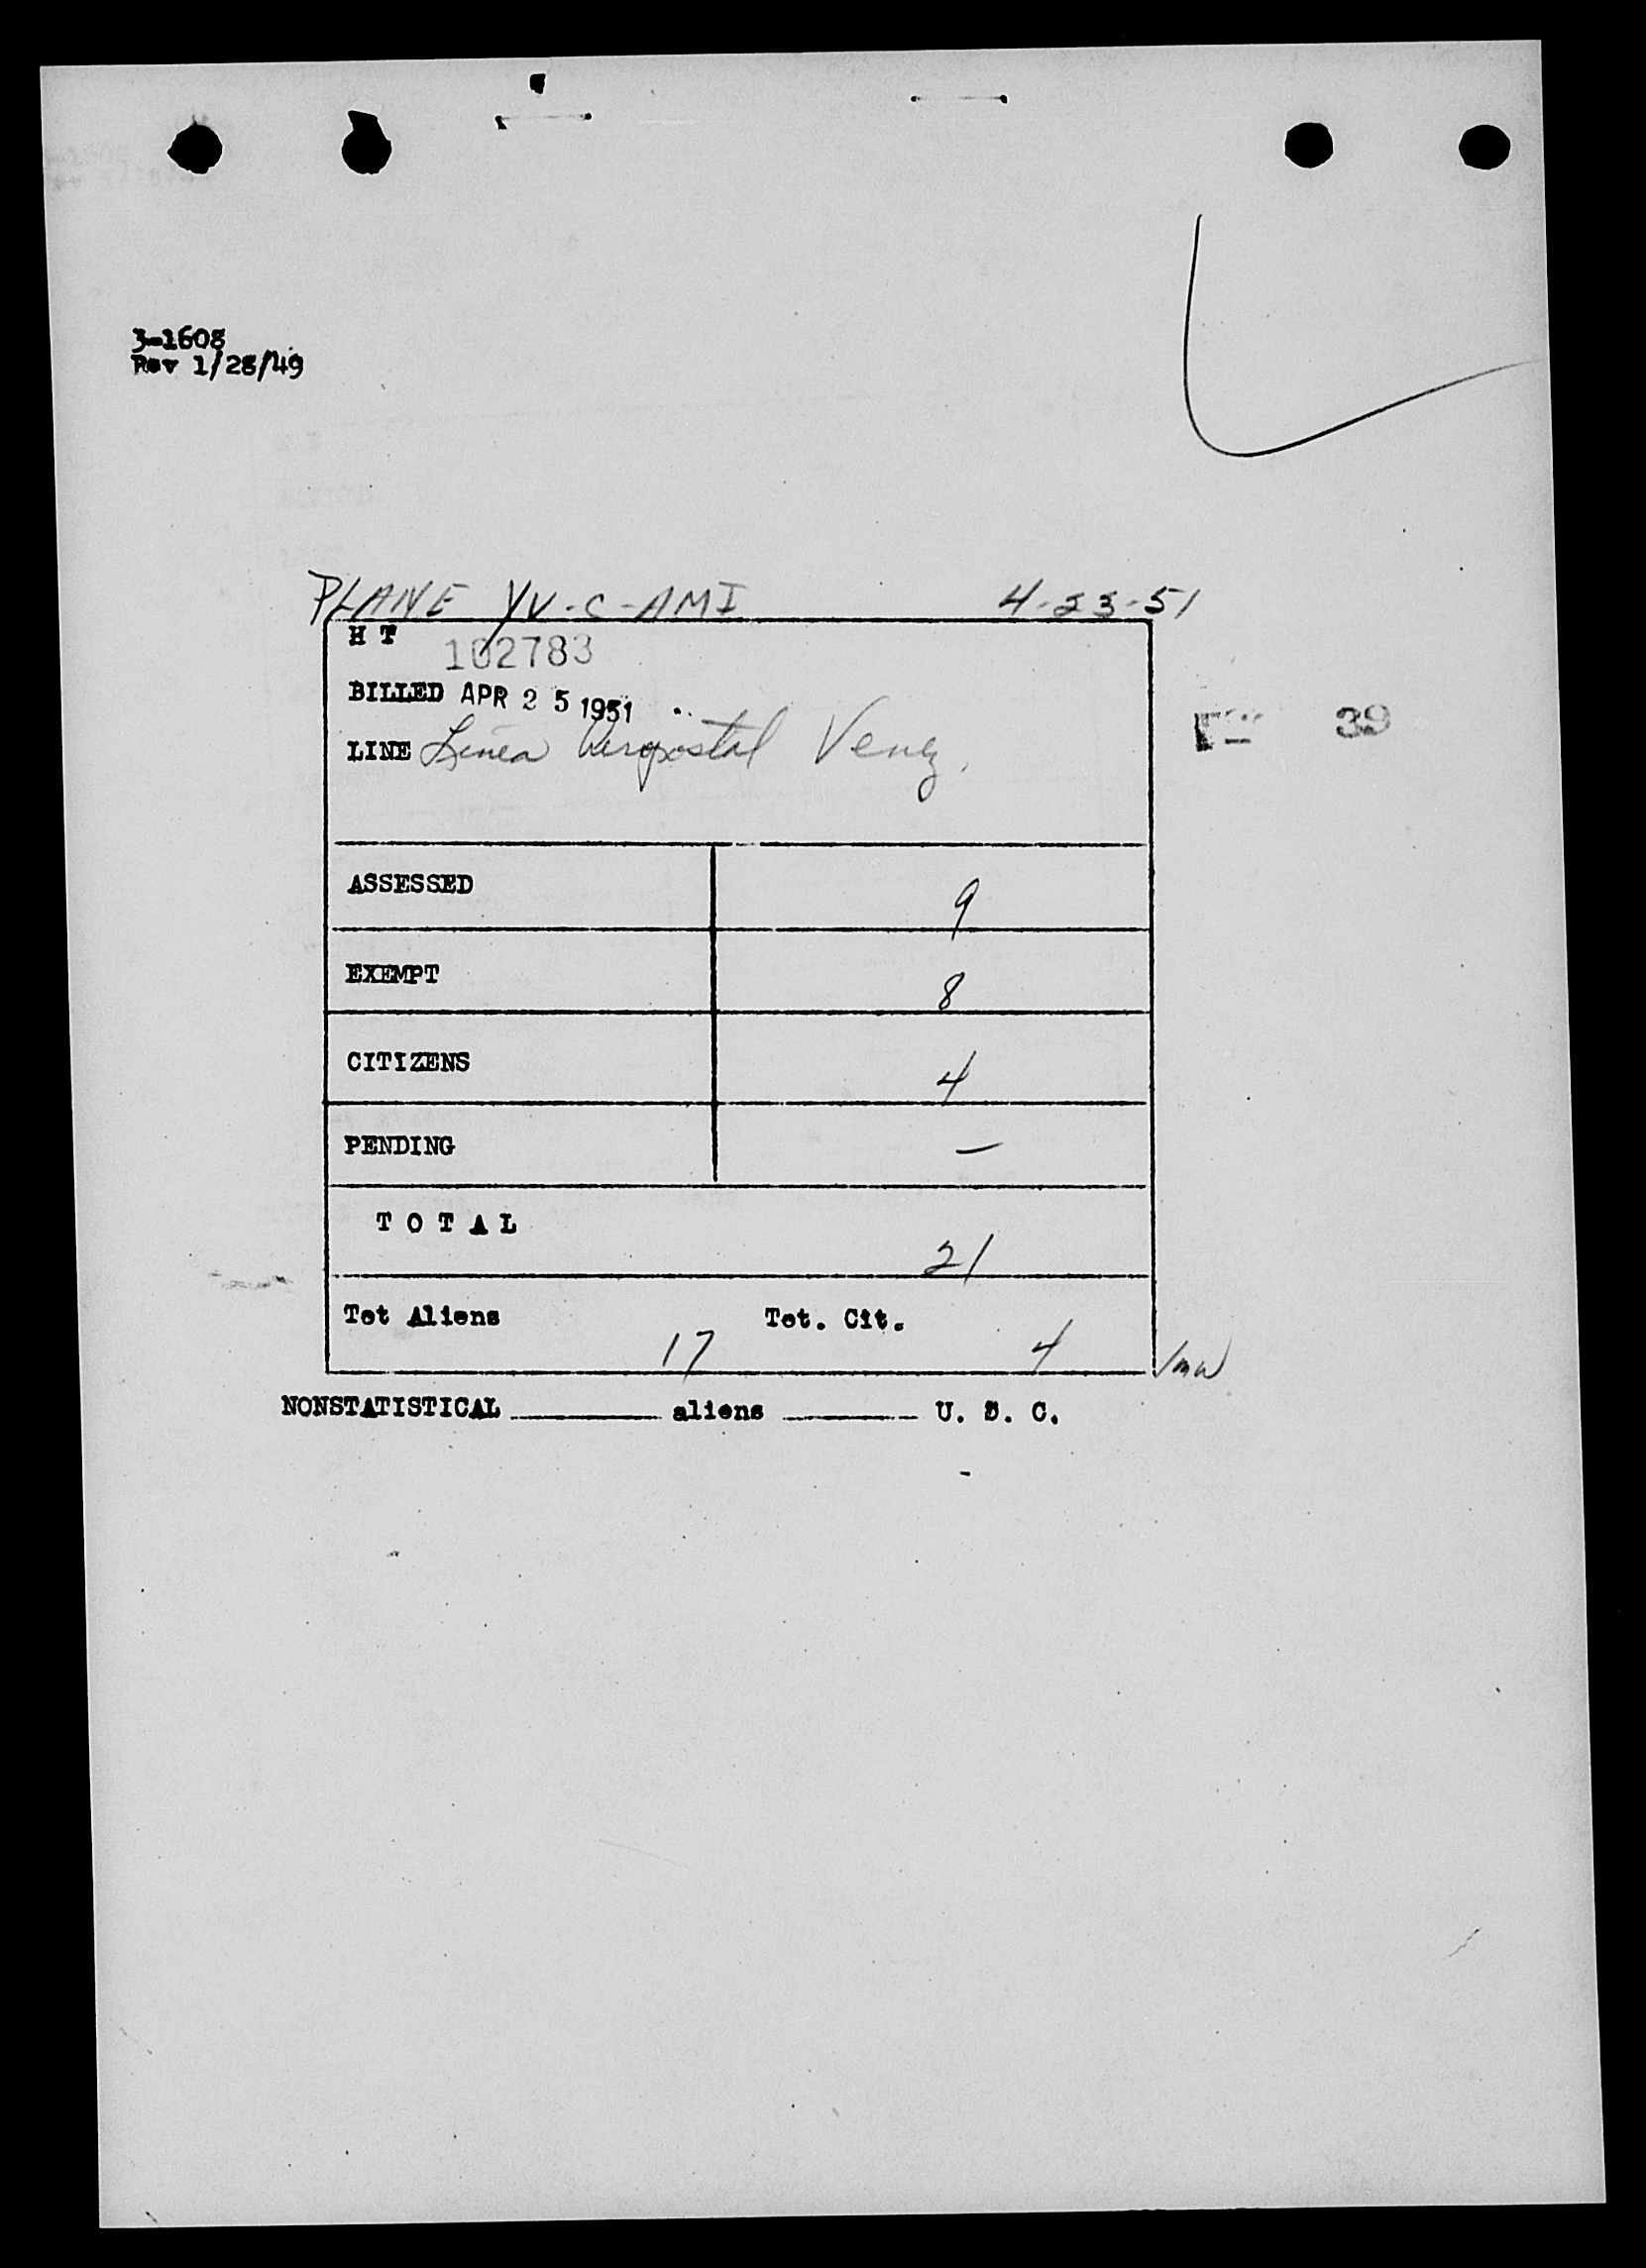 3-1608
Rev 1/28/49
PLANE YV-C-AMI 4-23-51
H T 102783
BILLED APR 25 1951
LINE Linea Aeropostal Venez.
ASSESSED 9
EXEMPT 8
CITIZENS 4
PENDING —
TOTAL 21
Tot Aliens 17 Tot. Cit. 4
NONSTATISTICAL ______ aliens ______ U. S. C.
39